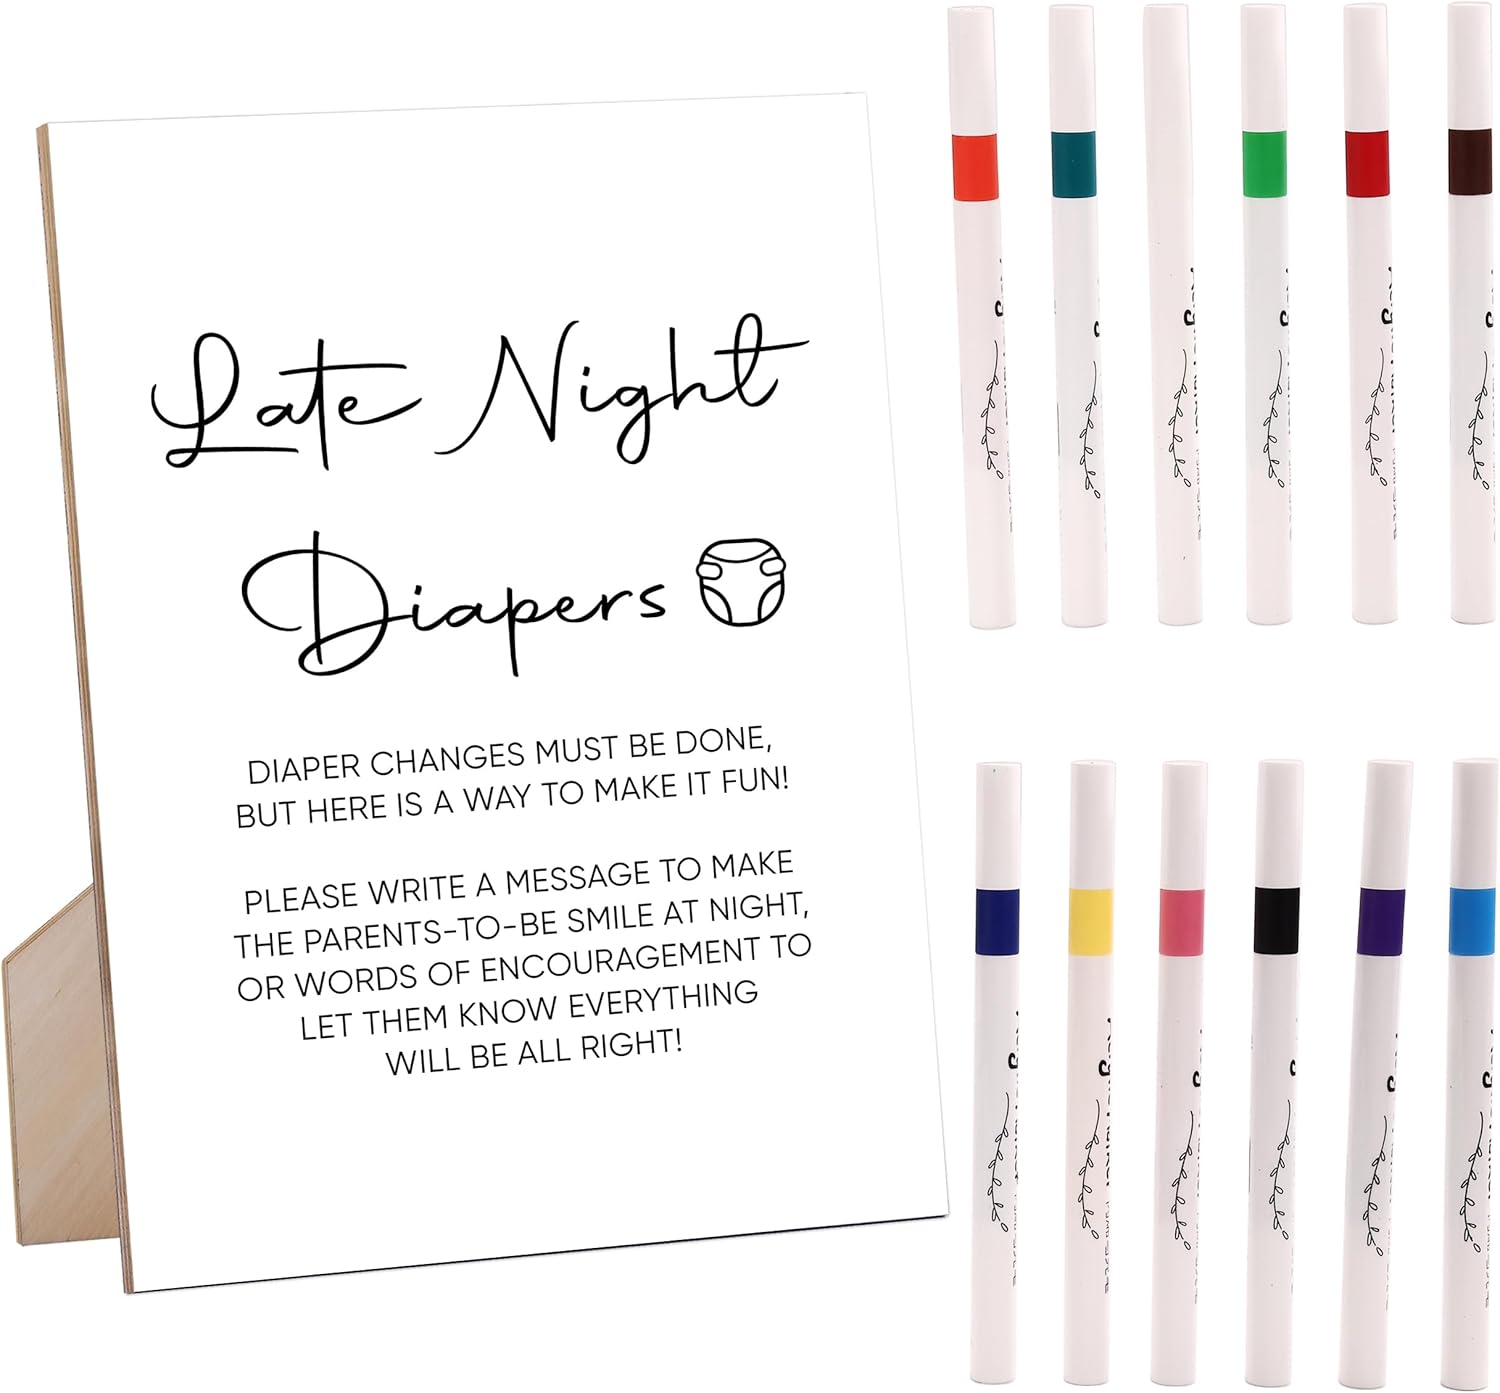 Late Night
Diapers
DIAPER CHANGES MUST BE DONE,
BUT HERE IS A WAY TO MAKE IT FUN!
PLEASE WRITE A MESSAGE TO MAKE
THE PARENTS-TO-BE SMILE AT NIGHT,
OR WORDS OF ENCOURAGEMENT TO
LET THEM KNOW EVERYTHING
WILL BE ALL RIGHT!